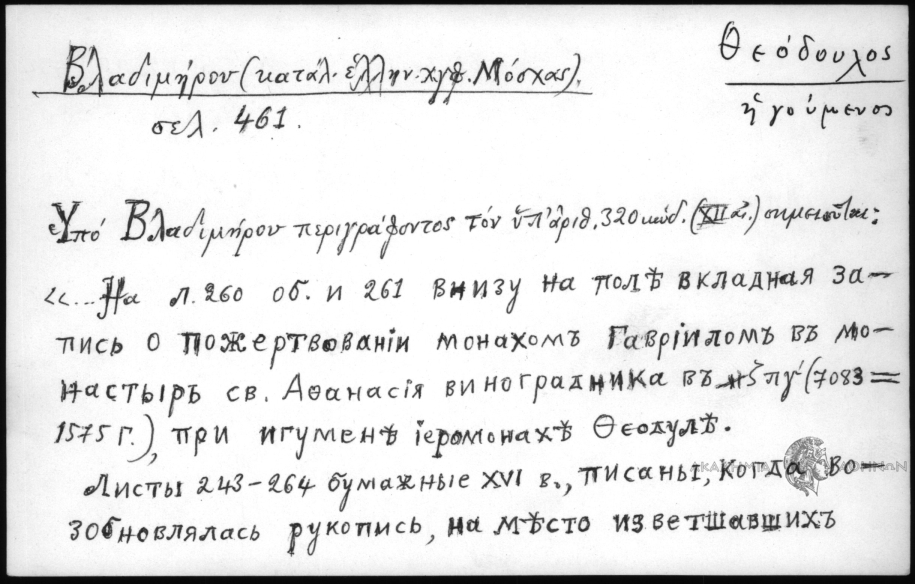 Βλαδιμήρου (κατάλ. ἑλλην. χγφ. Μόσχας).
σελ. 461.
Θεόδουλος
ἡγούμενος
Ὑπό Βλαδιμήρου περιγράφοντος τόν ὑπ' ἀριθ. 320 κώδ. (XII αἰ.) σημειοῦται:
«... На л. 260 об. и 261 внизу на полѣ вкладная за-
пись о пожертвованіи монахомъ Гавріиломъ въ мо-
настырь св. Аѳанасія виноградника въ ͵ζπγ' (7083 =
1575 г.), при игуменѣ іеромонахѣ Ѳеодулѣ.
Листы 243-264 бумажные XVI в., писаны, когда во-
зобновлялась рукопись, на мѣсто изветшавшихъ
ΑΚΑΔΗΜΙΑ ΑΘΗΝΩΝ